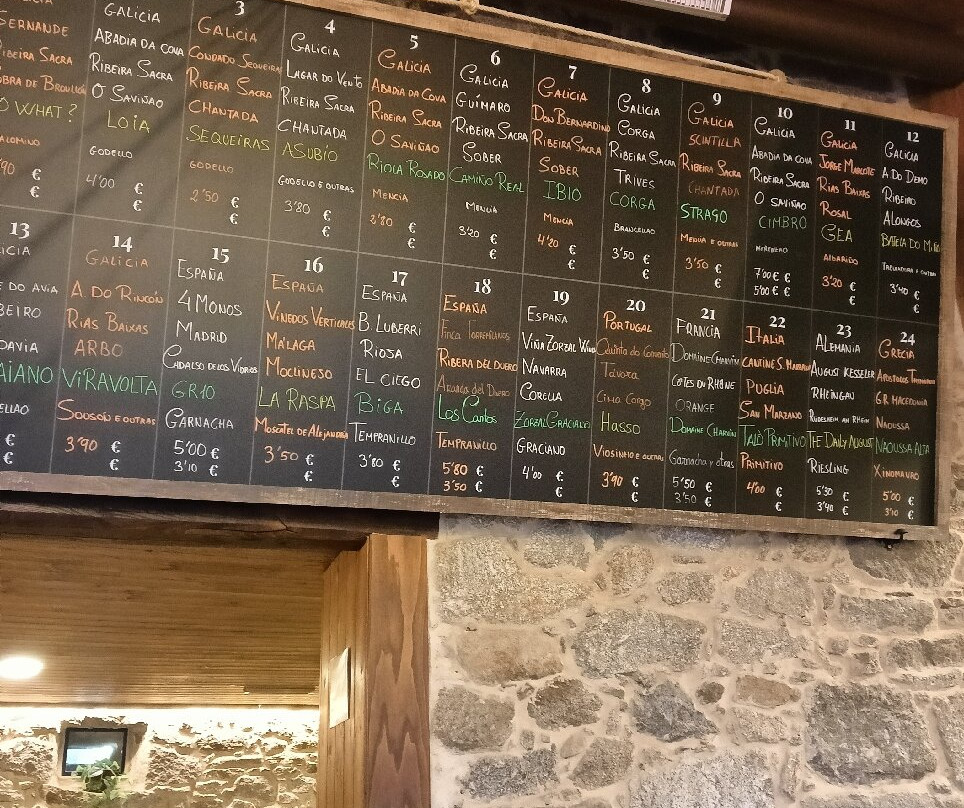 FERNANDE
RIBEIRA SACRA
O WHAT?
PALOMINO
90 €
€
GALICIA
ABADIA DA COVA
RIBEIRA SACRA
O SAVIÑAO
LOIA
GODELLO
4'00 €
€
3
GALICIA
CONDADO SEQUEIRAS
RIBEIRA SACRA
CHANTADA
SEQUEIRAS
GODELLO
2'50 €
€
4
GALICIA
LAGAR DO VENTO
RIBEIRA SACRA
CHANTADA
ASUBIO
GODELLO E OUTRAS
3'80 €
€
5
GALICIA
ABADIA DA COVA
RIBEIRA SACRA
O SAVIÑAO
RIOLA ROSADO
MENCIA
2'80 €
€
6
GALICIA
GUIMARO
RIBEIRA SACRA
SOBER
CAMIÑO REAL
MENCIA
3'20 €
€
7
GALICIA
DON BERNARDINO
RIBEIRA SACRA
SOBER
IBIO
MENCIA
4'20 €
€
8
GALICIA
CORGA
RIBEIRA SACRA
TRIVES
CORGA
BRANCELLAO
3'50 €
€
9
GALICIA
SCINTILLA
RIBEIRA SACRA
CHANTADA
STRAGO
MENCIA E OUTRAS
3'50 €
€
10
GALICIA
ABADIA DA COVA
RIBEIRA SACRA
O SAVIÑAO
CIMBRO
MERENZAO
7'00 € €
5'00 € €
11
GALICIA
JORGE MARCOTE
RIAS BAIXAS
ROSAL
GEA
ALBARIÑO
3'20 €
€
12
GALICIA
A DO DEMO
RIBEIRO
ALONGOS
BATELA DO MIÑO
3'40 €
€
13
E DO AVIA
€
€
14
GALICIA
A. DO RINCÓN
RIAS BAIXAS
ARBO
VIRAVOLTA
SOUSON E OUTRAS
3'90 €
€
15
ESPAÑA
4 MONOS
MADRID
CADALSO DE LOS VIDRIOS
GR10
GARNACHA
5'00 €
3'10 €
16
ESPAÑA
VIÑEDOS VERTICALES
MÁLAGA
MOCLINESO
LA RASPA
MOSCATEL DE ALEJANDRIA
3'50 €
€
17
ESPAÑA
B. LUBERRI
RIOJA
EL CIEGO
BIGA
TEMPRANILLO
3'80 €
€
18
ESPAÑA
FINCA TORREMILANOS
RIBERA DEL DUERO
ARANDA DEL DUERO
LOS CANTOS
TEMPRANILLO
5'80 €
3'50 €
19
ESPAÑA
VIÑA ZORZAL WINES
NAVARRA
CORELLA
ZORZAL GRACIANO
GRACIANO
4'00 €
€
20
PORTUGAL
TÁVORA
CIMA CORGO
HASSO
VIOSINHO E OUTRAS
3'90 €
€
21
FRANCIA
DOMAINE CHARVIN
COTES DU RHÔNE
ORANGE
DOMAINE CHARVIN
GARNACHA Y OTRAS
5'50 €
3'50 €
22
ITALIA
CANTINE S. MARZANO
PUGLIA
SAN MARZANO
TALÒ PRIMITIVO
PRIMITIVO
4'00 €
€
23
ALEMANIA
AUGUST KESSELER
RHEINGAU
RÜDESHEIM AM RHEIN
THE DAILY AUGUST
RIESLING
5'30 €
3'40 €
24
GRECIA
GR. MACEDONIA
NAOUSSA
NAOUSSA ALTA
XINOMAVRO
5'00 €
3'10 €